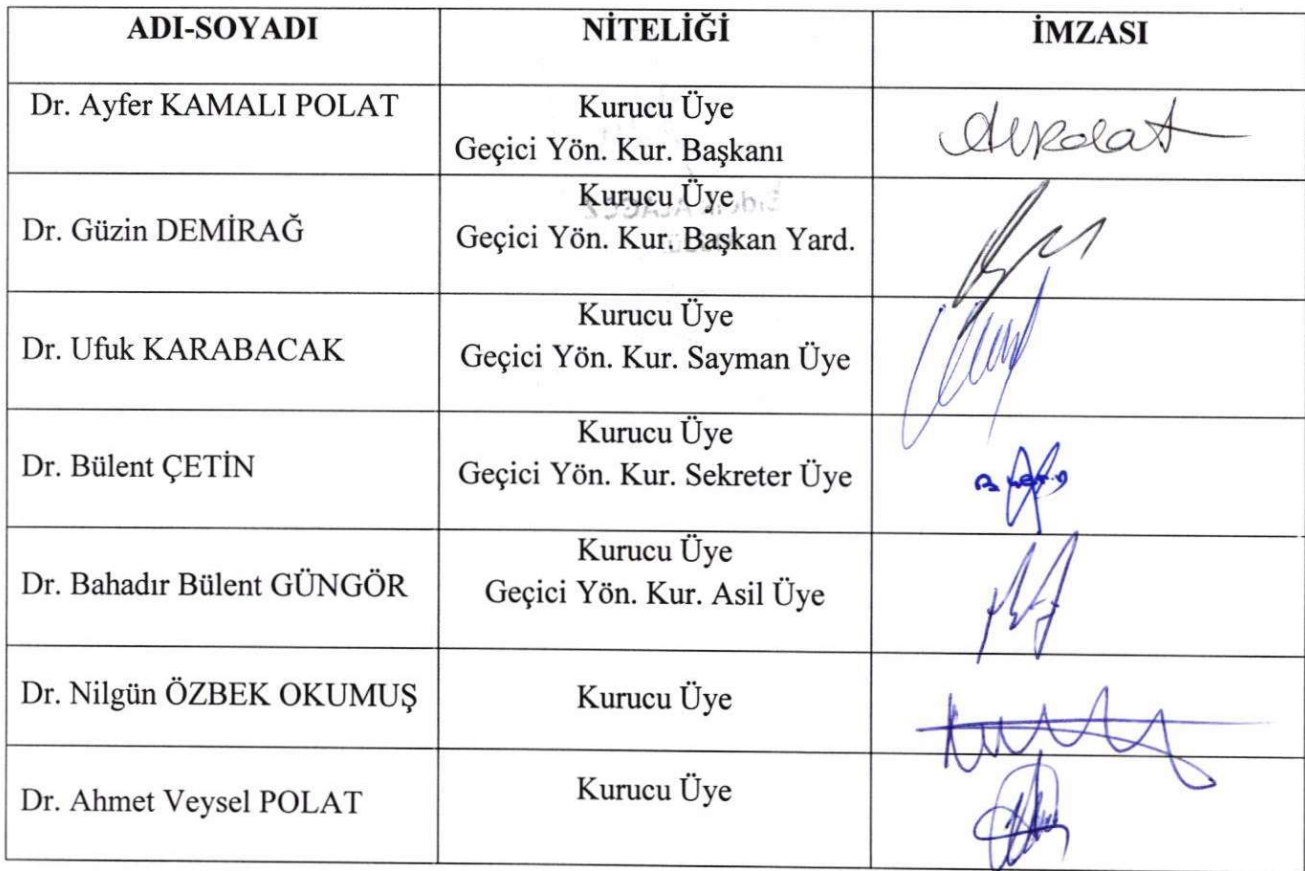 ADI-SOYADI NİTELİĞİ İMZASI
Dr. Ayfer KAMALI POLAT Kurucu Üye
Geçici Yön. Kur. Başkanı
Dr. Güzin DEMİRAĞ Kurucu Üye
Geçici Yön. Kur. Başkan Yard.
Dr. Ufuk KARABACAK Kurucu Üye
Geçici Yön. Kur. Sayman Üye
Dr. Bülent ÇETİN Kurucu Üye
Geçici Yön. Kur. Sekreter Üye
Dr. Bahadır Bülent GÜNGÖR Kurucu Üye
Geçici Yön. Kur. Asil Üye
Dr. Nilgün ÖZBEK OKUMUŞ Kurucu Üye
Dr. Ahmet Veysel POLAT Kurucu Üye